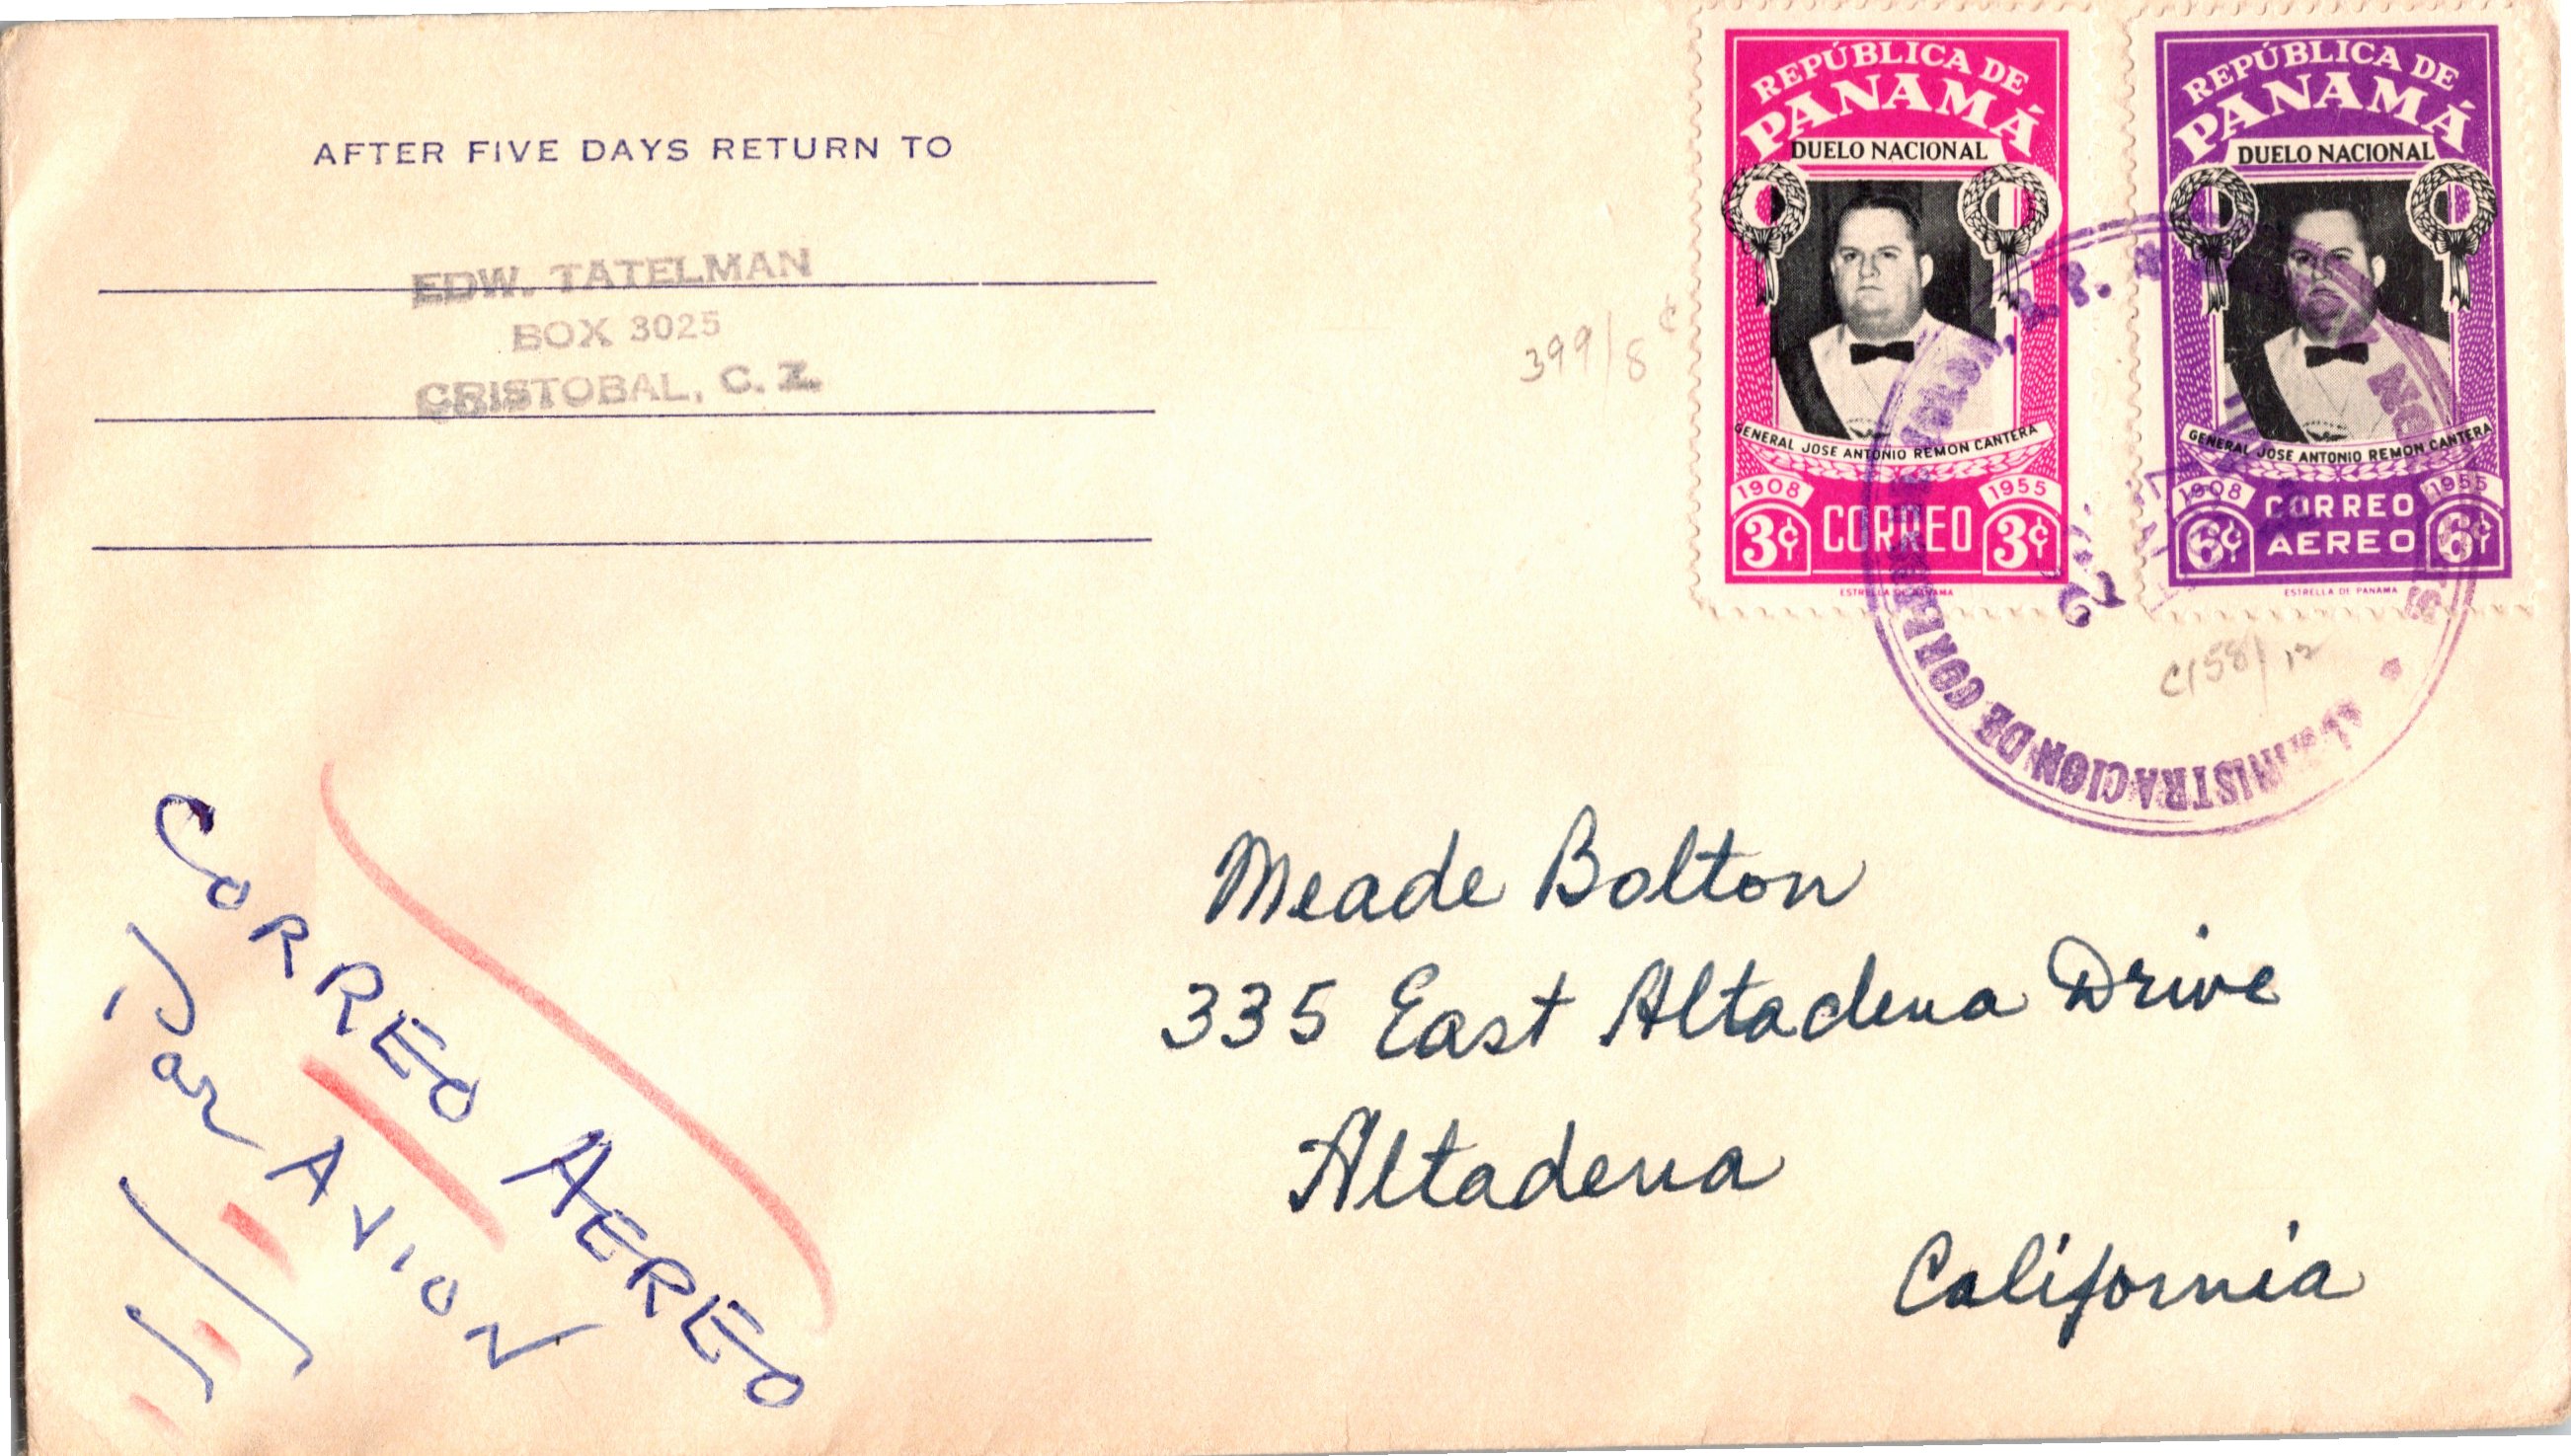 AFTER FIVE DAYS RETURN TO
EDW. TATELMAN
BOX 3025
CRISTOBAL, C. Z.
399/8¢
REPÚBLICA DE
PANAMÁ
DUELO NACIONAL
GENERAL JOSE ANTONIO REMON CANTERA
1908 1955
3¢ CORREO 3¢
ESTRELLA DE PANAMA
REPÚBLICA DE
PANAMÁ
DUELO NACIONAL
GENERAL JOSE ANTONIO REMON CANTERA
1908 1955
6¢ CORREO AEREO 6¢
ESTRELLA DE PANAMA
ADMINISTRACION DE CORREOS
COLON, R. P.
C158/12
Meade Bolton
335 East Altadena Drive
Altadena
California
CORREO AEREO
Par AVION